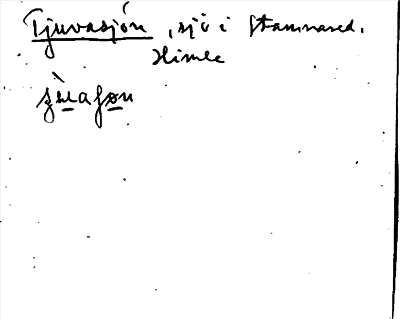 Tjuvasjön, sjö i Stamnared.
Himle